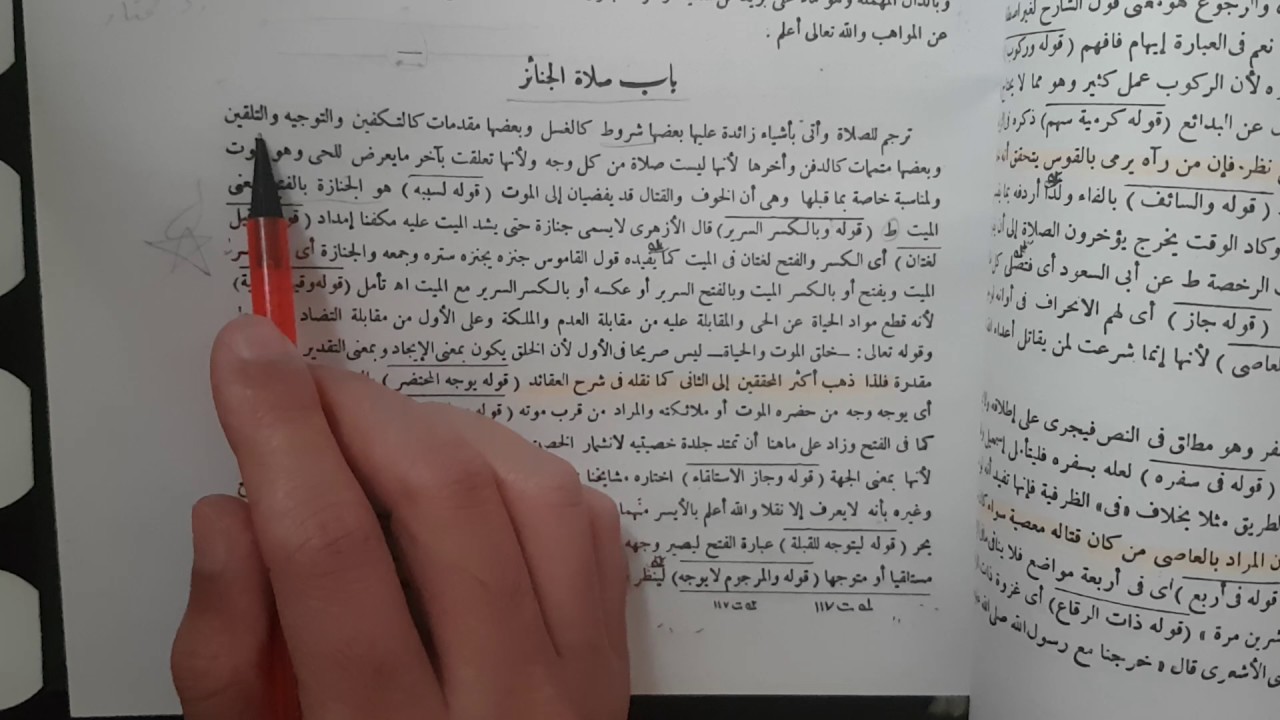 عن المواهب والله تعالى أعلم .
باب صلاة الجنائز
ترجم للصلاة وأتى بأشياء زائدة عليها بعضها شروط كالغسل وبعضها مقدمات كالتكفين والتوجيه والتلقين
وبعضها متممات كالدفن وأخرها لأنها ليست صلاة من كل وجه ولأنها تعلقت بآخر مايعرض للحى وهو
ولمناسبة خاصة بما قبلها وهى أن الخوف والقتال قد يفضيان إلى الموت ( قوله لسببه ) هو الجنازة بالفتح
الميت ط ( قوله وبالكسر السرير) قال الأزهرى لايسمى جنازة حتى يشد الميت عليه مكفنا إمداد (
لغتان ) أى الكسر والفتح لغتان فى الميت كما يفيده قول القاموس جنزه يجنزه ستره وجمعه والجنازة أى
الميت ويفتح أو بالكسر الميت وبالفتح السرير أو عكسه أو بالكسر السرير مع الميت اه تأمل (قوله
لأنه قطع مواد الحياة عن الحى والمقابلة عليه من مقابلة العدم والملكة وعلى الأول من مقابلة التضاد
وقوله تعالى : ــ خلق الموت والحياة ــ ليس صريحا فى الأول لأن الخلق يكون بمعنى الإيجاد وبمعنى التقدير
مقدرة فلذا ذهب أكثر المحققين إلى الثانى كما نقله فى شرح العقائد ( قوله يوجه المحتضر )
أى يوجه وجه من حضره الموت أو ملائكته والمراد من قرب موته ( قوله
كما فى الفتح وزاد على ماهنا أن تمتد جلدة خصيتيه لانشمار
لأنها بمعنى الجهة ( قوله وجاز الاستلقاء ) اختاره مشايخنا
وغيره بأنه لايعرف إلا نقلا والله أعلم بالأيسر منهما
يحر ( قوله ليتوجه للقبلة ) عبارة الفتح ليصير وجهه
مستلقيا أو متوجها ( قوله والمرجوم لايوجه) لينظر
نعم فى العبارة إيهام فافهم ( قوله وركوب
لأن الركوب عمل كثير وهو مما لا
عن البدائع ( قوله كرمية سهم) ذكره
نظر. فإن من رآه يرمى بالقوس يتحقق
( قوله والسائف ) بالفاء ولذا أردفه
وكاد الوقت يخرج يؤخرون الصلاة إلى أن
الرخصة ط عن أبى السعود أى فتصلى كل
( قوله جاز ) أى لهم الانحراف فى أوانه
) لأنها إنما شرعت لمن يقاتل أعداء
وهو مطلق فى النص فيجرى على إطلاقه
( قوله فى سفره ) لعله بسفره فليتأمل
الطريق مثلا بخلاف «فى» الظرفية فإنها تفيد
المراد بالعاصى من كان قتاله معصية سواء
قوله فى أربع ) أى فى أربعة مواضع فلا
مرة » (قوله ذات الرقاع) أى غزوة ذات
الأشعرى قال « خرجنا مع رسول الله